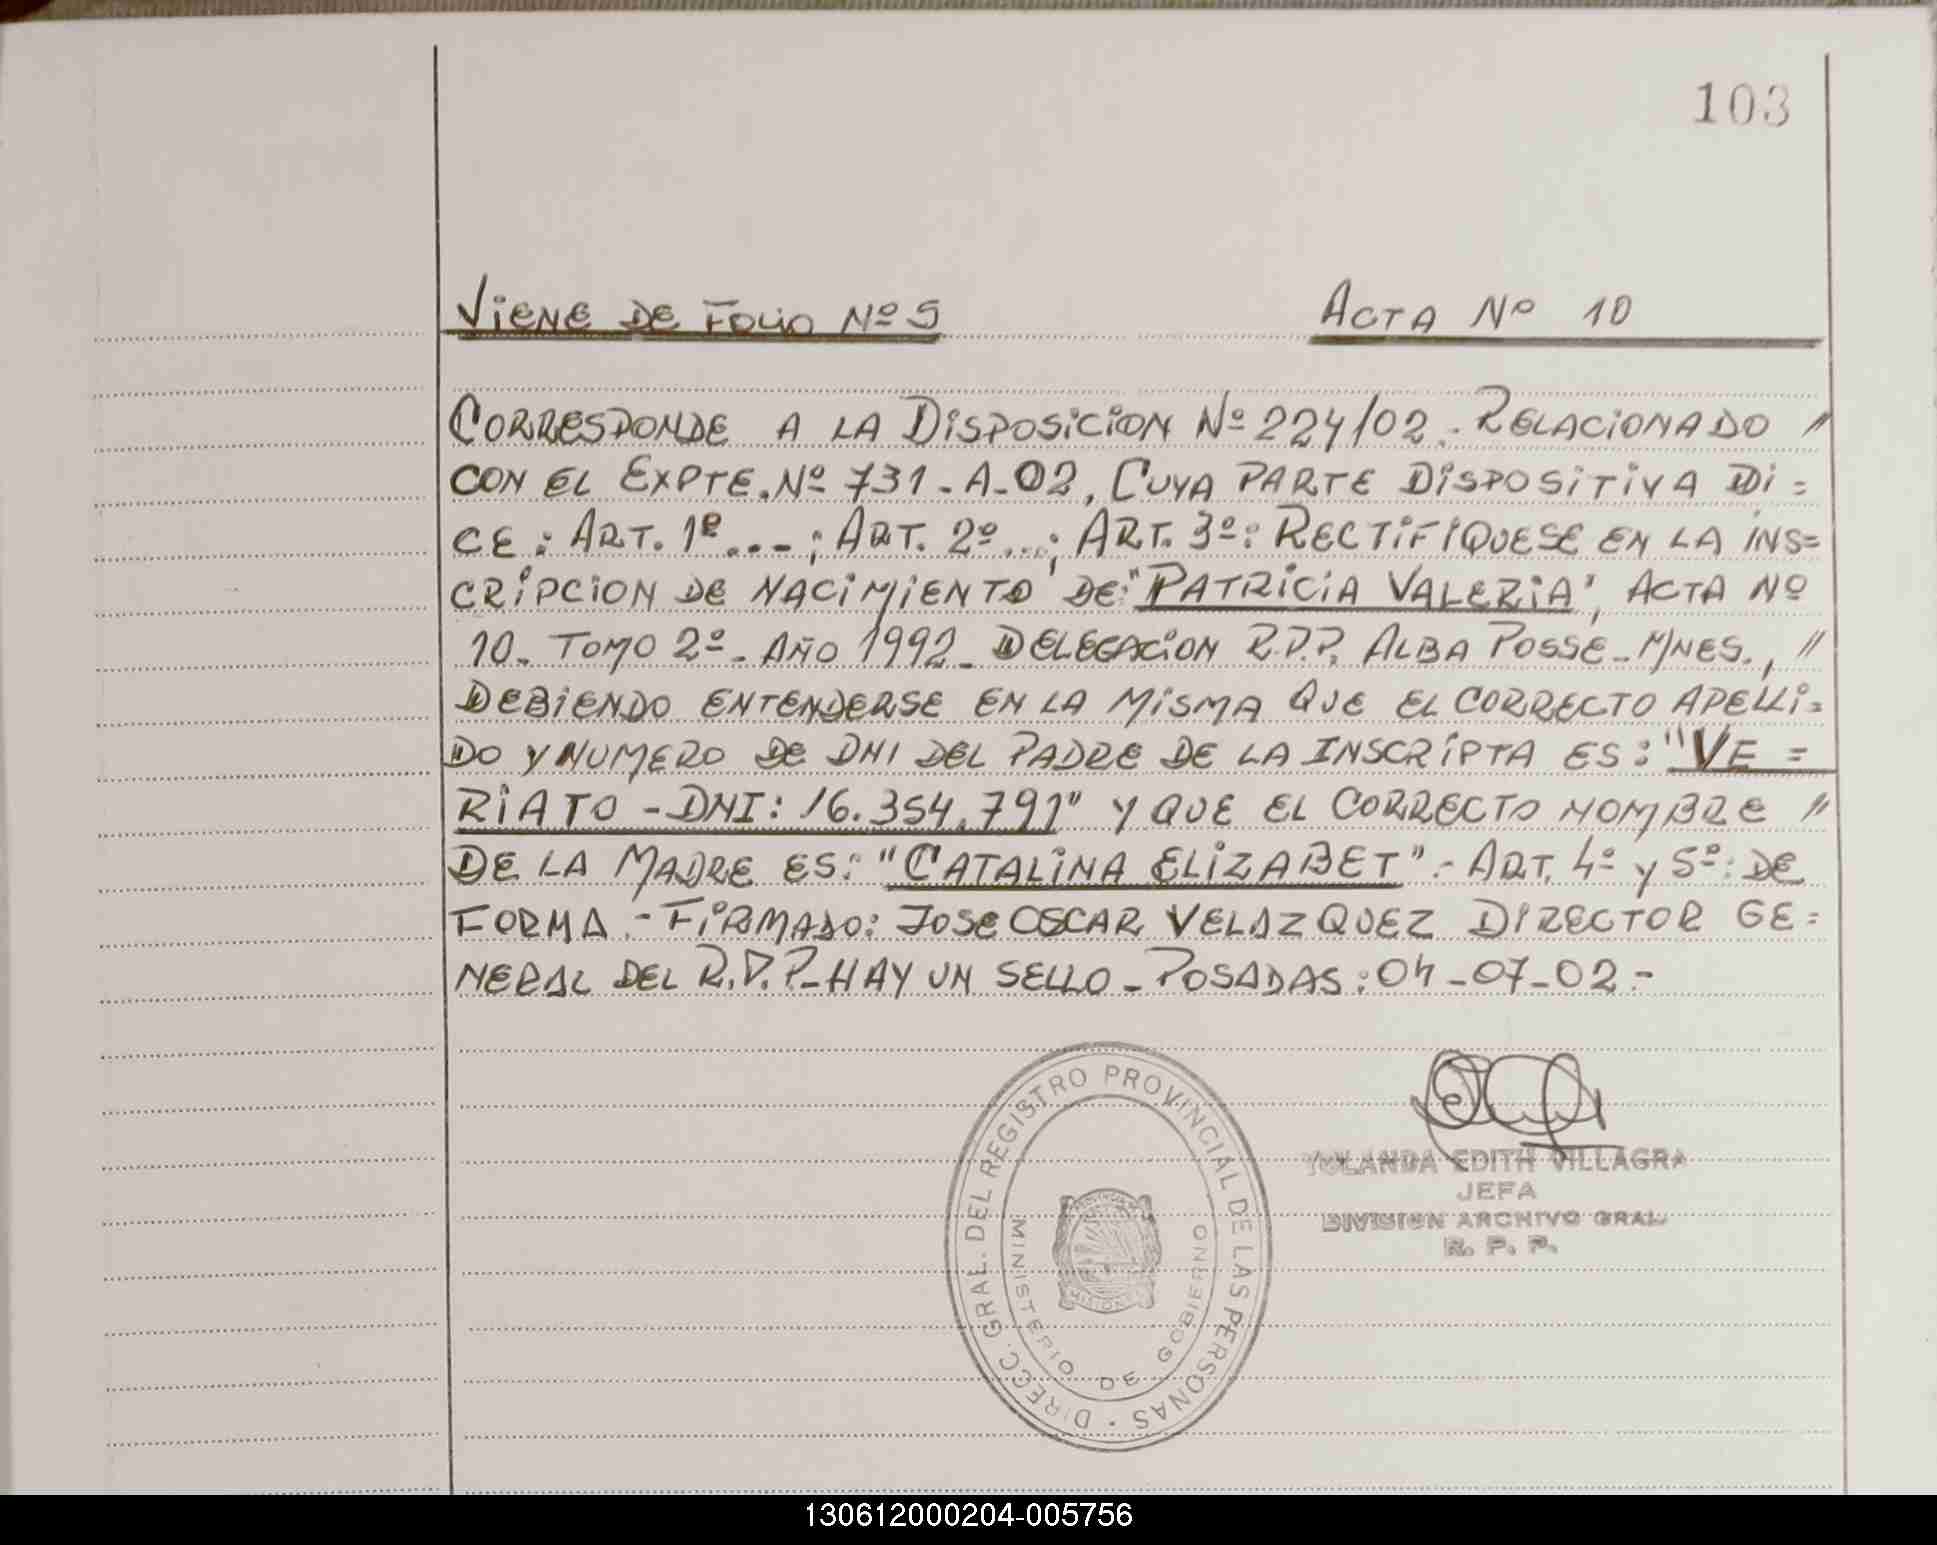 103
VIENE DE FOLIO Nº 5 ACTA Nº 10
CORRESPONDE A LA DISPOSICION Nº 224/02.- RELACIONADO //
CON EL EXPTE. Nº 731-A-02, CUYA PARTE DISPOSITIVA DI=
CE: ART. 1º...-; ART. 2º...; ART. 3º: RECTIFIQUESE EN LA INS=
CRIPCION DE NACIMIENTO DE: "PATRICIA VALERIA", ACTA Nº
10- TOMO 2º- AÑO 1992- DELEGACION R.P.P. ALBA POSSE-MNES., //
DEBIENDO ENTENDERSE EN LA MISMA QUE EL CORRECTO APELLI=
DO Y NUMERO DE DNI DEL PADRE DE LA INSCRIPTA ES: "VE=
RIATO - DNI: 16.354.791" Y QUE EL CORRECTO NOMBRE //
DE LA MADRE ES: "CATALINA ELIZABET".- ART. 4º y 5º: DE
FORMA.- FIRMADO: JOSE OSCAR VELAZQUEZ DIRECTOR GE=
NERAL DEL R.P.P.-HAY UN SELLO-POSADAS: 04-07-02.-
DIRECC. GRAL. DEL REGISTRO PROVINCIAL DE LAS PERSONAS
MINISTERIO DE GOBIERNO
MISIONES
YOLANDA EDITH VILLAGRA
JEFA
DIVISION ARCHIVO GRAL.
R. P. P.
130612000204-005756